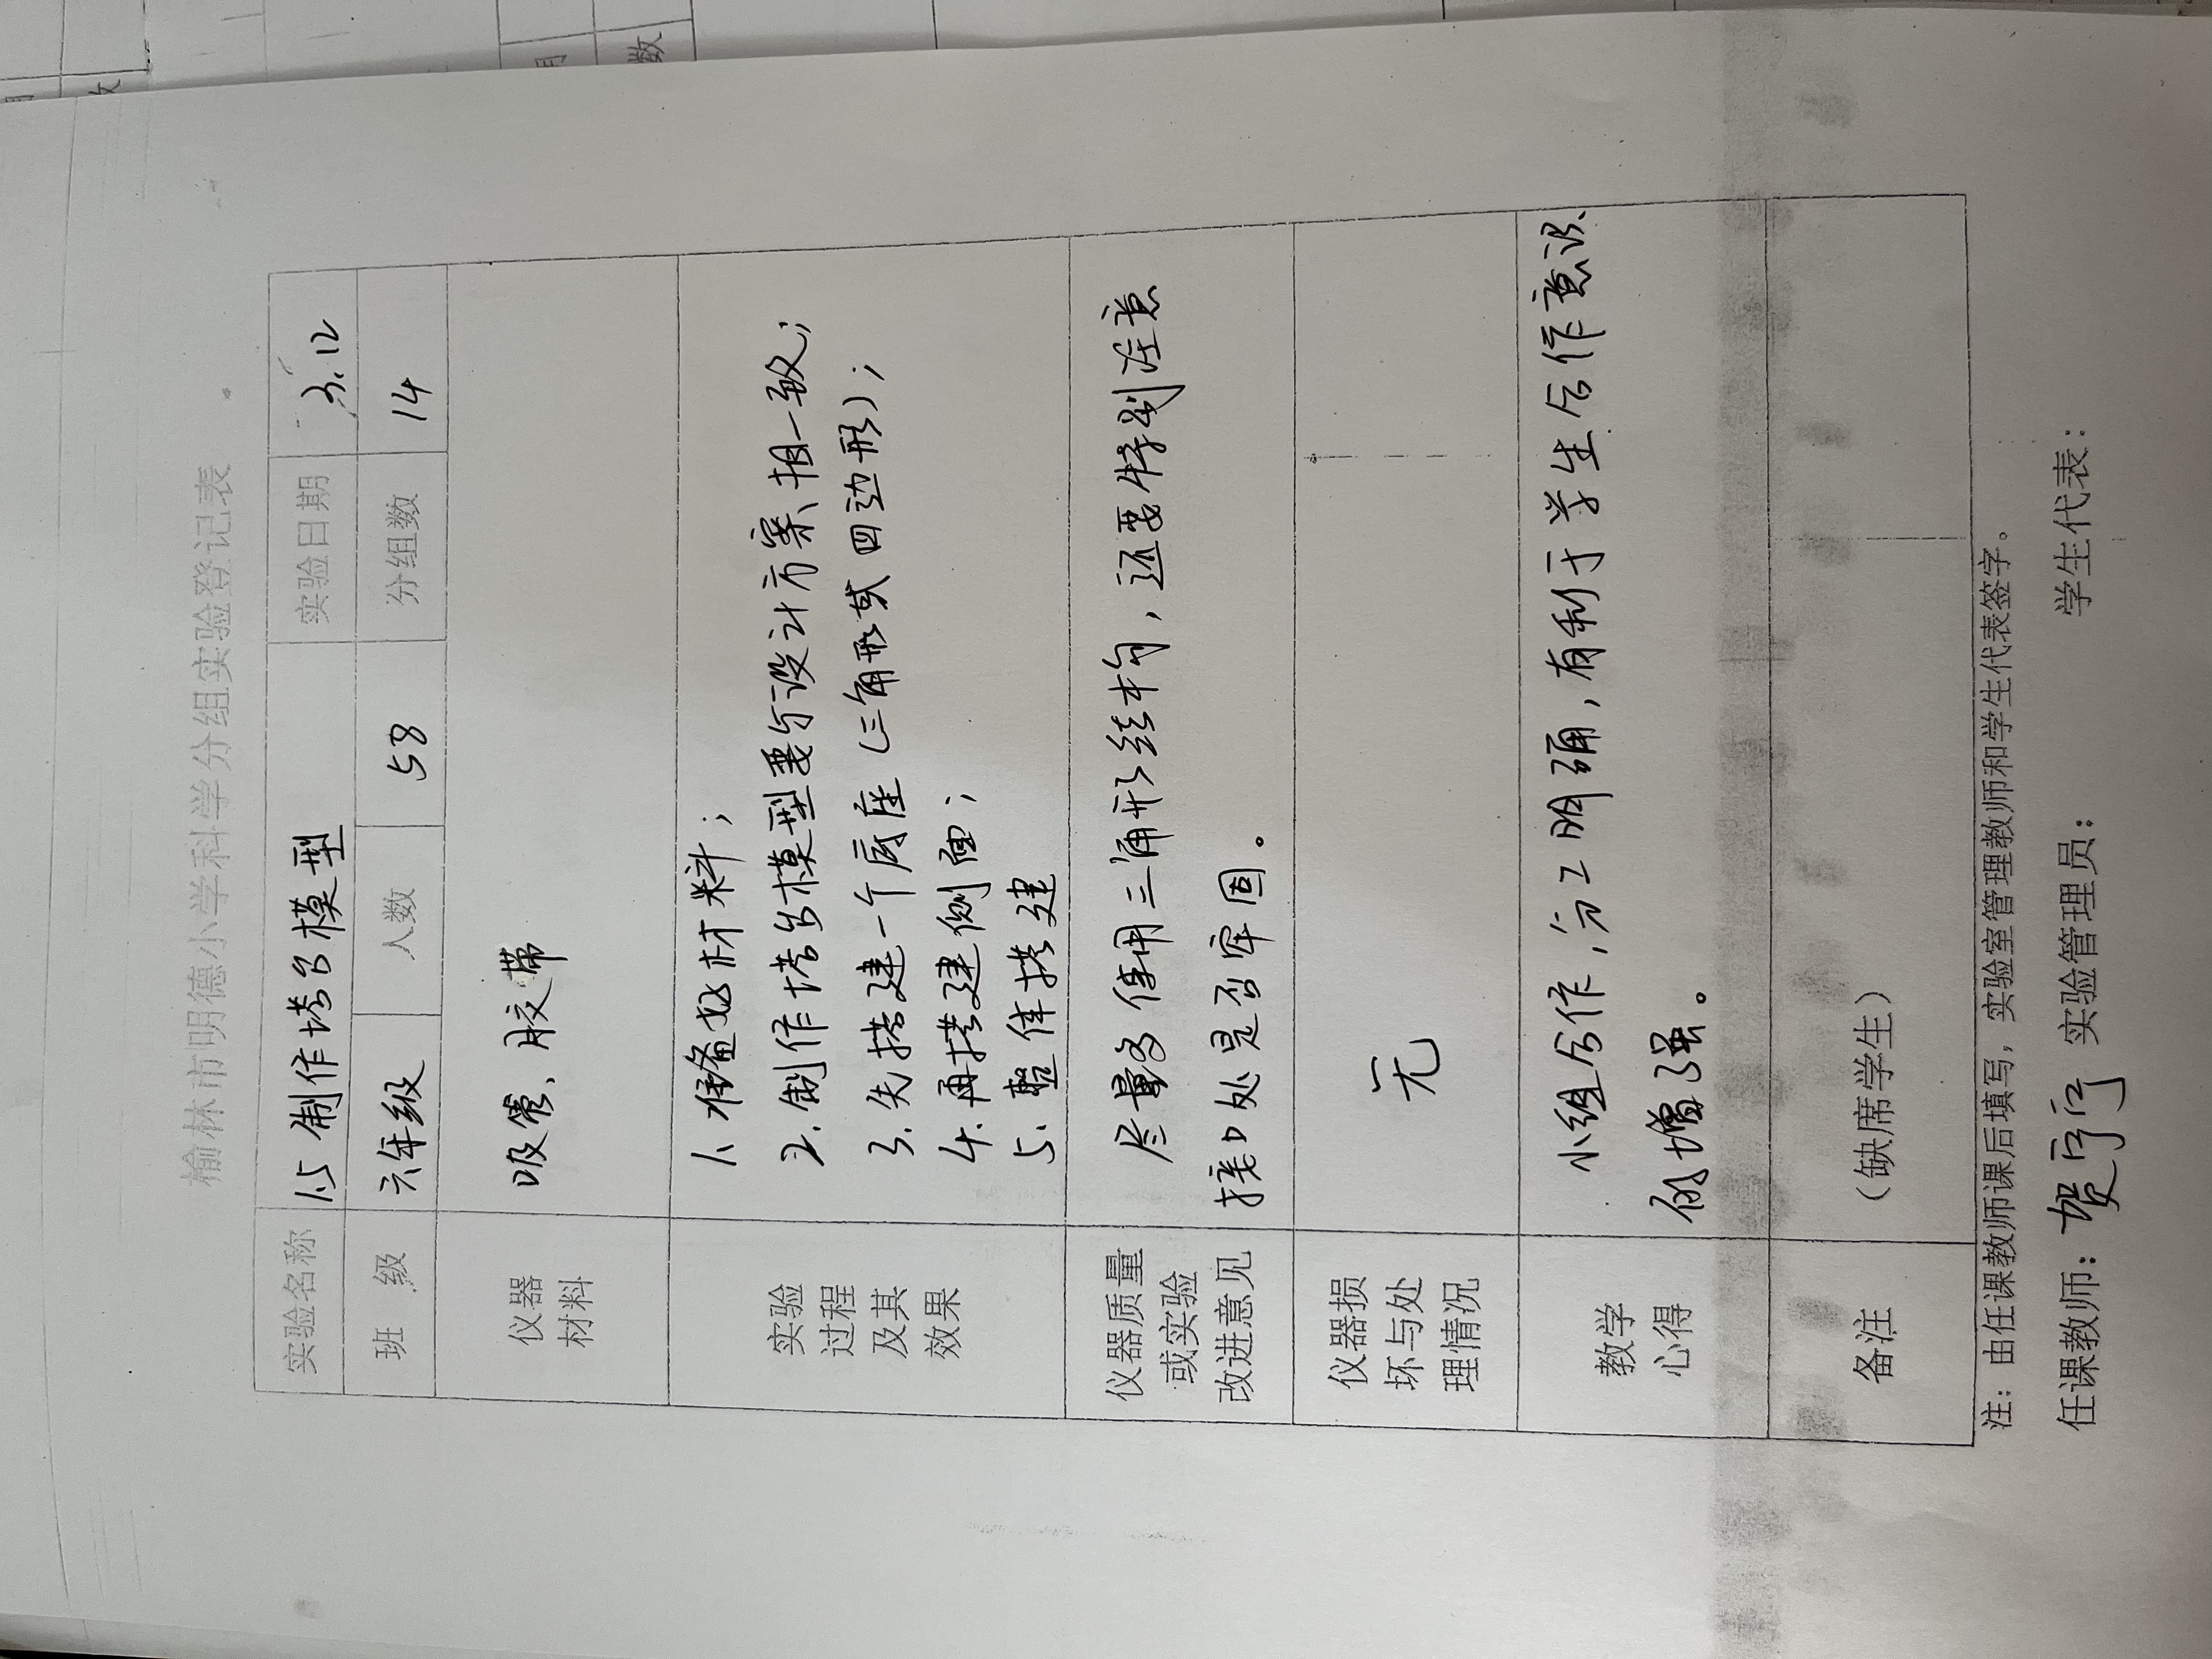 榆林市明德小学科学分组实验登记表
实验名称 1.5 制作塔台模型 实验日期 3.12
班 级 六年级 人数 58 分组数 14
仪器材料 吸管、胶带
实验过程及其效果
1. 准备材料;
2. 制作塔台模型要与设计方案相一致;
3. 先搭建一个底座(三角形或四边形);
4. 再搭建侧面;
5. 整体搭建
仪器质量或实验改进意见
尽量多使用三角形结构,还要特别注意
接口处是否牢固。
仪器损坏与处理情况 无
教学心得
小组合作,分工明确,有利于学生合作意识
的增强。
备注 (缺席学生)
注:由任课教师课后填写,实验室管理教师和学生代表签字。
任课教师:贺 实验管理员: 学生代表:
用
数